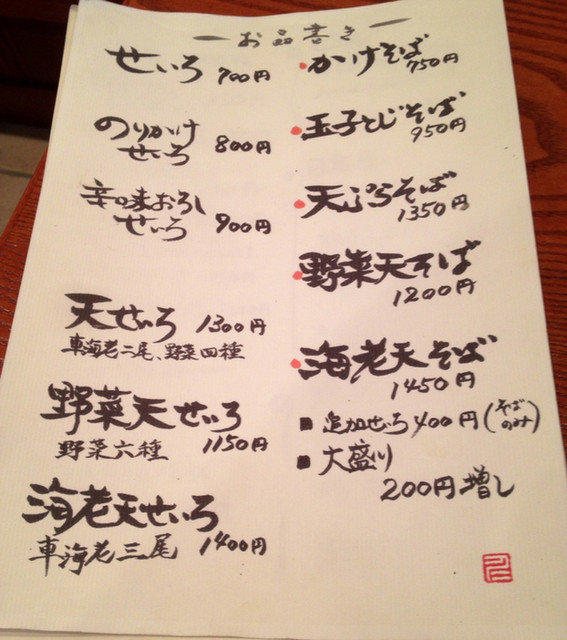 お品書き
せいろ 700円
のりかけ
せいろ 800円
辛味おろし
せいろ 900円
天せいろ 1300円
車海老二尾、野菜四種
野菜天せいろ
野菜六種 1150円
海老天せいろ
車海老三尾 1400円
かけそば
750円
玉子とじそば
950円
天ぷらそば
1350円
野菜天そば
1200円
海老天そば
1450円
■追加せいろ400円(そばのみ)
■大盛り
200円増し